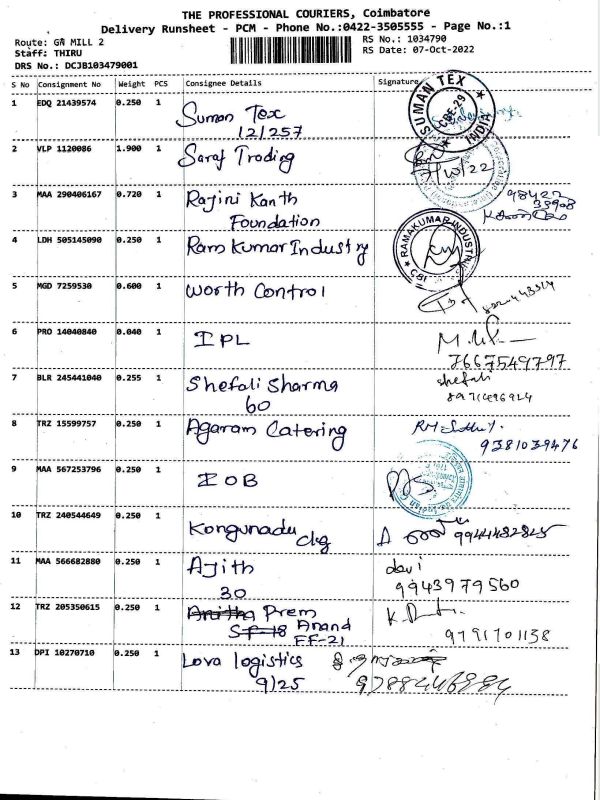 THE PROFESSIONAL COURIERS, Coimbatore
Delivery Runsheet - PCM - Phone No.:0422-3505555 - Page No.:1
Route: GN MILL 2
RS No.: 1034790
Staff: THIRU
RS Date: 07-Oct-2022
DRS No.: DCJB103479001
S No Consignment No Weight PCS Consignee Details Signature
1 EDQ 21439574 0.250 1 Suman Tex
121257
SUMAN TEX
CBE-29
INDIA
2 VLP 1120086 1.900 1 Saraf Trading
3 MAA 290406167 0.720 1 Rajini Kanth
Foundation
4 LDH 505145090 0.250 1 Ram Kumar Industry
RAMAKUMAR INDUSTRI
5 MGD 7259530 0.600 1 Worth Control
6 PRO 14040840 0.040 1 IPL
7667549797
7 BLR 245441040 0.255 1 Shefali Sharma
60
shefali
8 TRZ 15599757 0.250 1 Agaram Catering
9381039476
9 MAA 567253796 0.250 1 IOB
10 TRZ 240544649 0.250 1 Kongunadu clg
9944482845
11 MAA 566682880 0.250 1 Ajith
30
devi
9943979560
12 TRZ 205350615 0.250 1 Anitha Prem
SF-18 Anand
FF-21
9791701138
13 DPI 10270710 0.250 1 Lova logistics
9/25